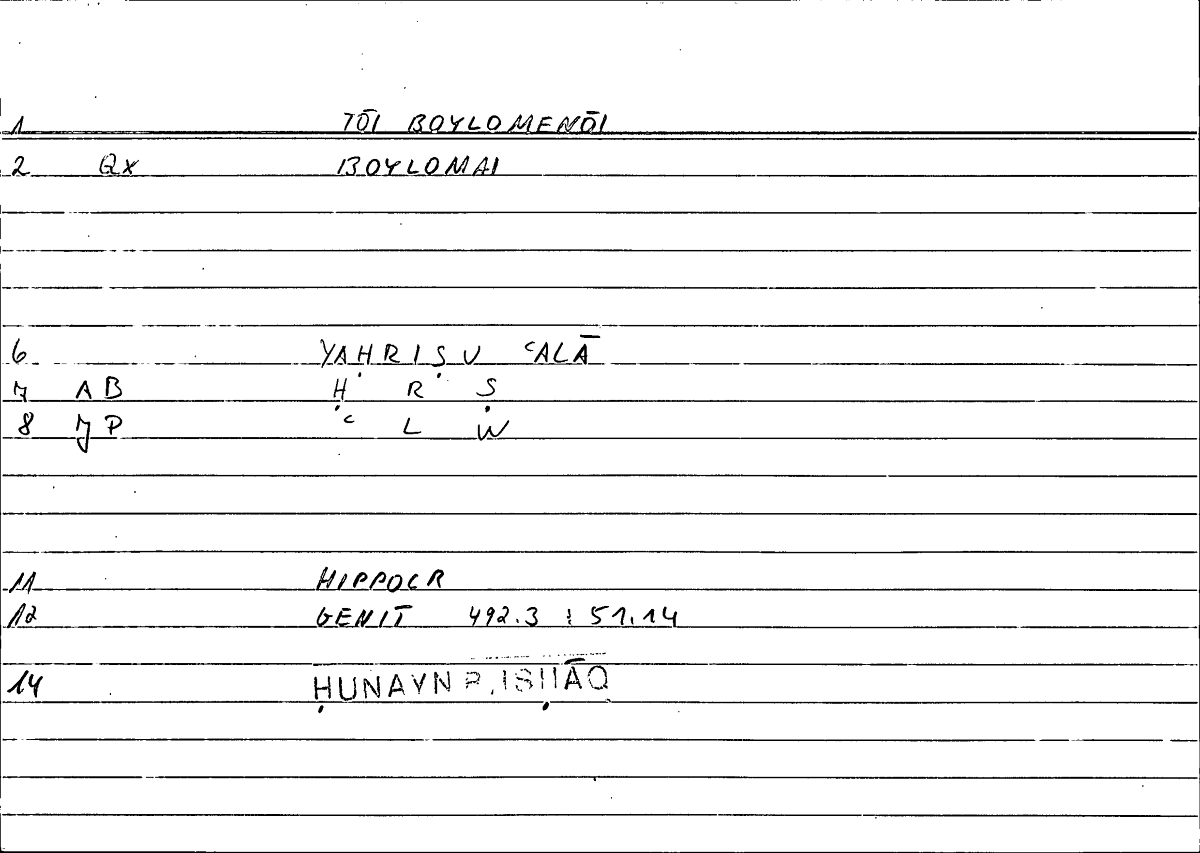 1 TŌI BOYLOMENŌI
2 Qx BOYLOMAI
6 YAḤRIṢU ʿALĀ
7 AB Ḥ R Ṣ
8 JP ʿ L W
11 HIPPOCR
12 GENIT 492.3 : 51.14
14 ḤUNAYN B. ISḤĀQ